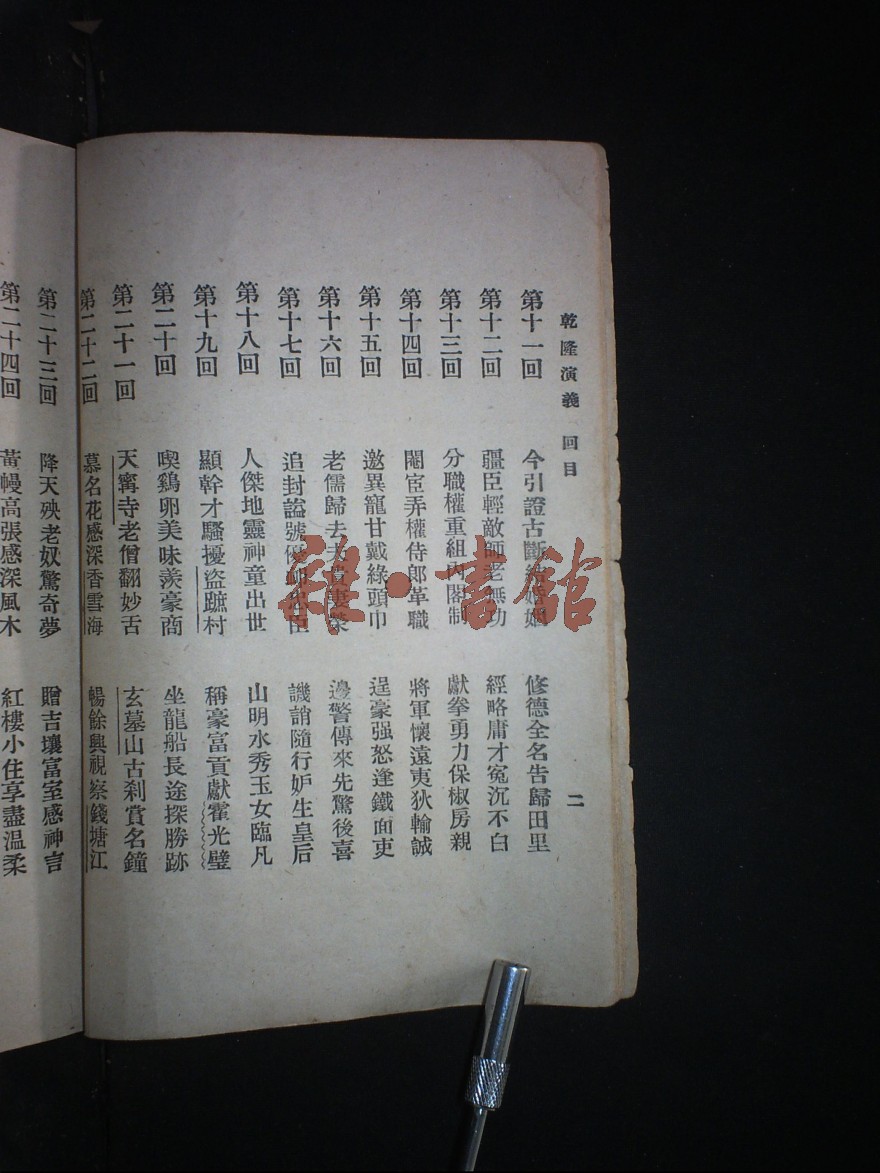 乾隆演義 回目 二
第十一回 今引證古斷結婚姻 修德全名告歸田里
第十二回 疆臣輕敵師老無功 經略庸才冤沉不白
第十三回 分職權重組內閣制 獻拳勇力保椒房親
第十四回 閹宦弄權侍郎革職 將軍懷遠夷狄輸誠
第十五回 邀異寵甘戴綠頭巾 逞豪强怒逢鐵面吏
第十六回 老儒歸去夫貴妻榮 邊警傳來先驚後喜
第十七回 追封諡號優卹忠臣 譏誚隨行妒生皇后
第十八回 人傑地靈神童出世 山明水秀玉女臨凡
第十九回 顯幹才騷擾盜蹠村 稱豪富貢獻霍光璧
第二十回 喫鷄卵美味羨豪商 坐龍船長途探勝跡
第二十一回 天寗寺老僧翻妙舌 玄墓山古刹賞名鐘
第二十二回 慕名花感深香雪海 暢餘興視察錢塘江
第二十三回 降天殃老奴驚奇夢 贈吉壤富室感神言
第二十四回 黃幔高張感深風木 紅樓小住享盡溫柔
雜·書館